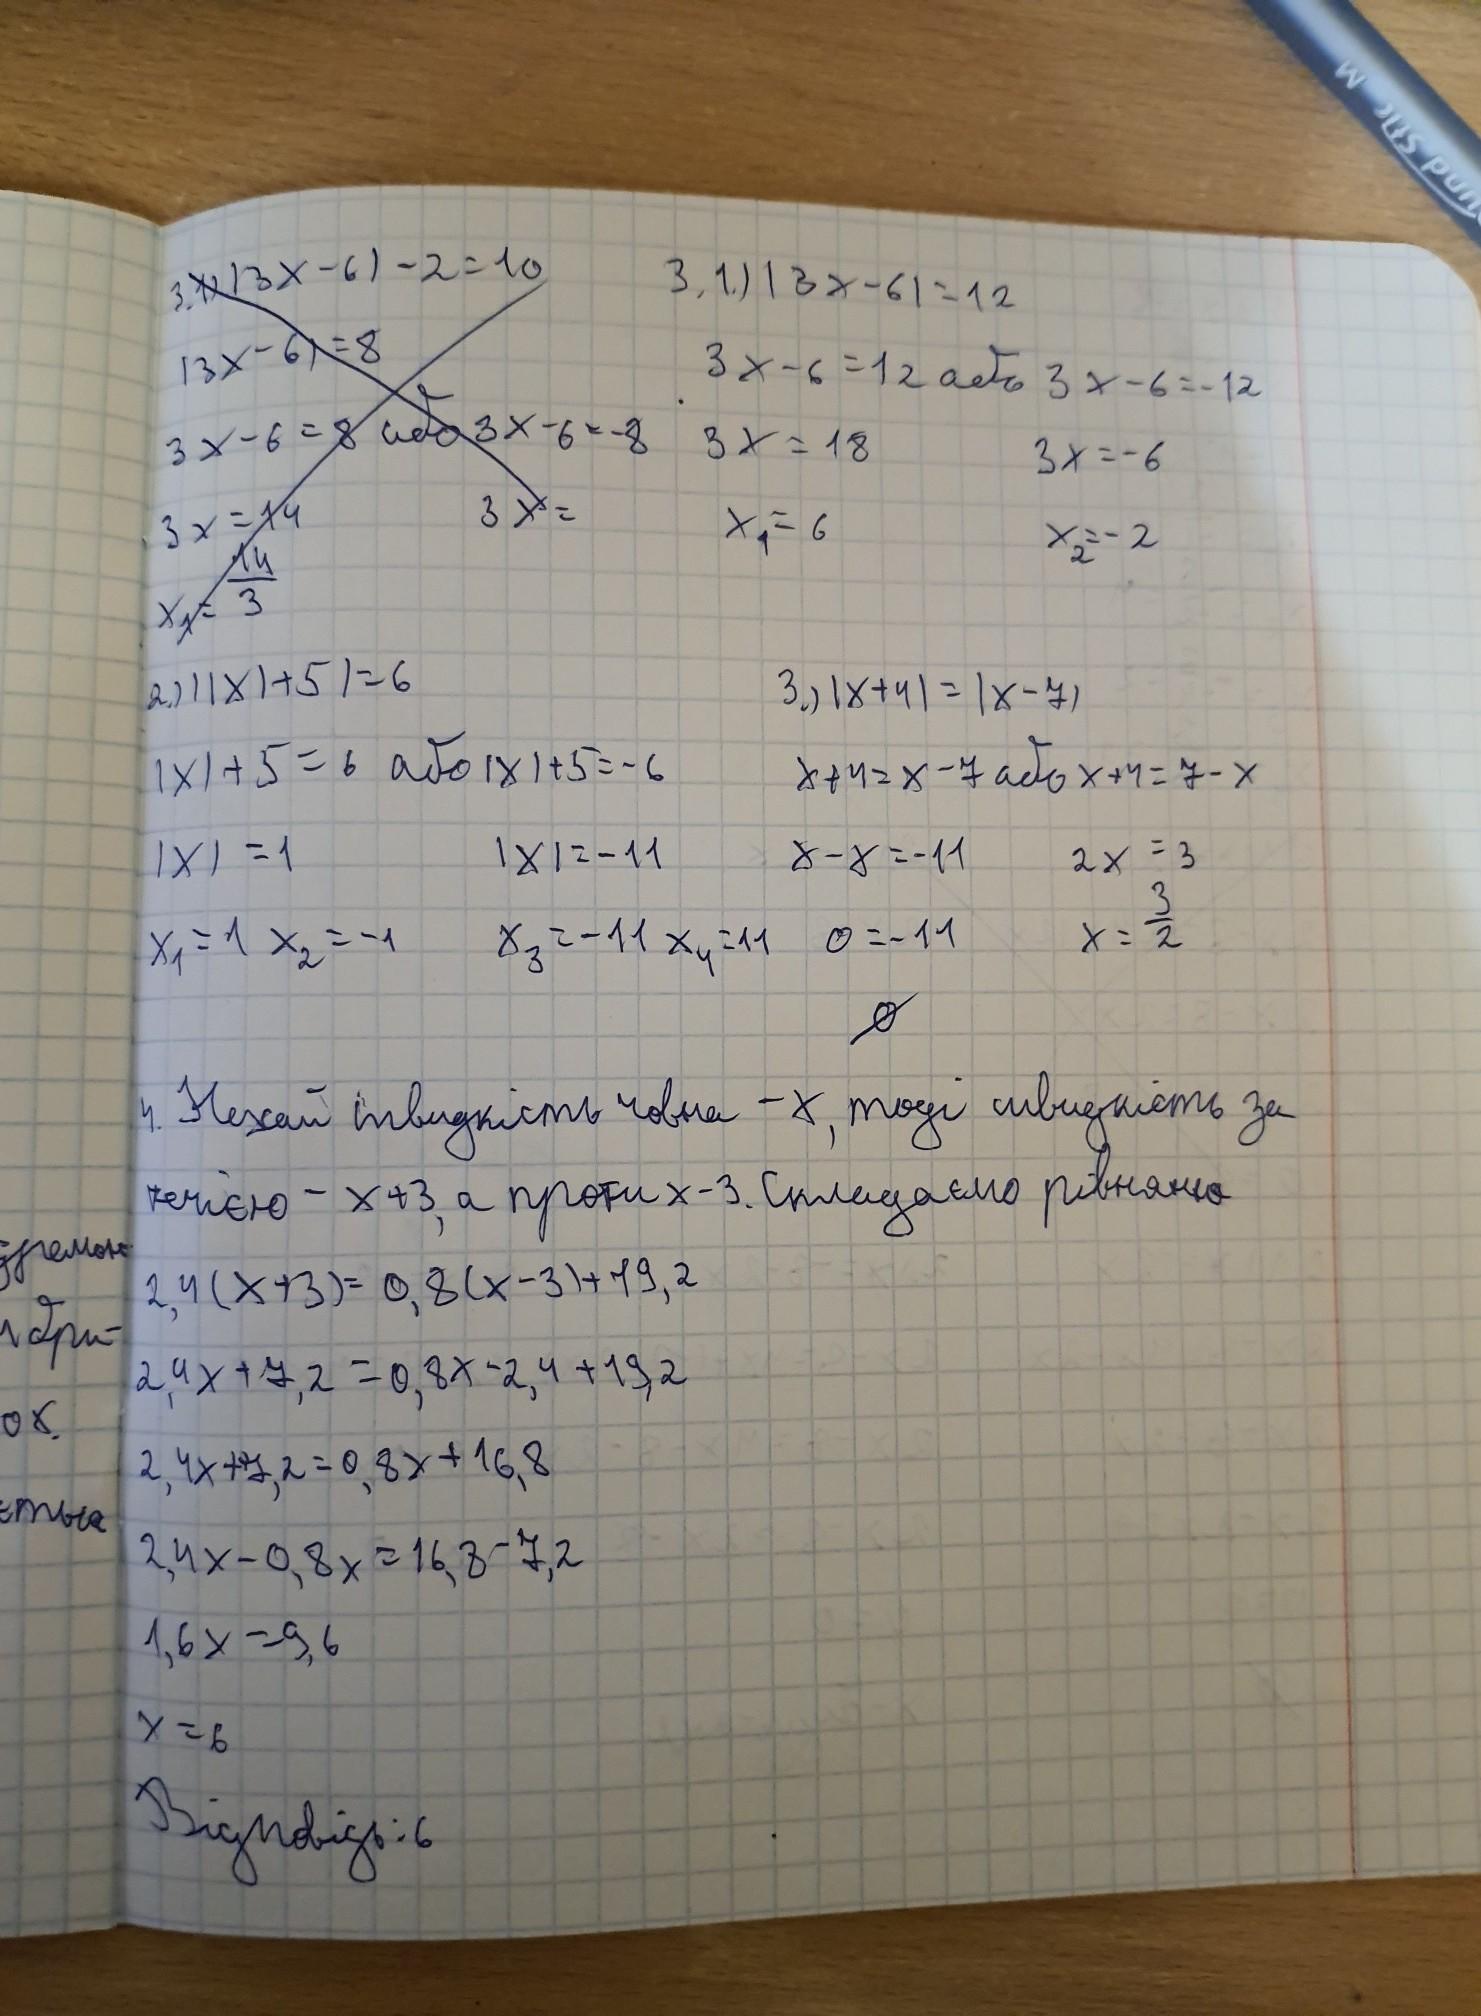 3.1)|3x-6|-2=10
|3x-6|=8
3x-6=8 або 3x-6=-8
3x=14 3x=
x₁=14/3
3.1.)|3x-6|=12
3x-6=12 або 3x-6=-12
3x=18 3x=-6
x₁=6 x₂=-2
2.)||x|+5|=6
|x|+5=6 або |x|+5=-6
|x|=1 |x|=-11
x₁=1 x₂=-1 x₃=-11 x₄=11
3.)|x+4|=|x-7|
x+4=x-7 або x+4=7-x
x-x=-11 2x=3
0=-11 x=3/2
∅
4. Нехай швидкість човна -x, тоді швидкість за
течією - x+3, а проти x-3. Складаємо рівняння
2,4(x+3)=0,8(x-3)+19,2
2,4x+7,2=0,8x-2,4+19,2
2,4x+7,2=0,8x+16,8
2,4x-0,8x=16,8-7,2
1,6x=9,6
x=6
Відповідь:6